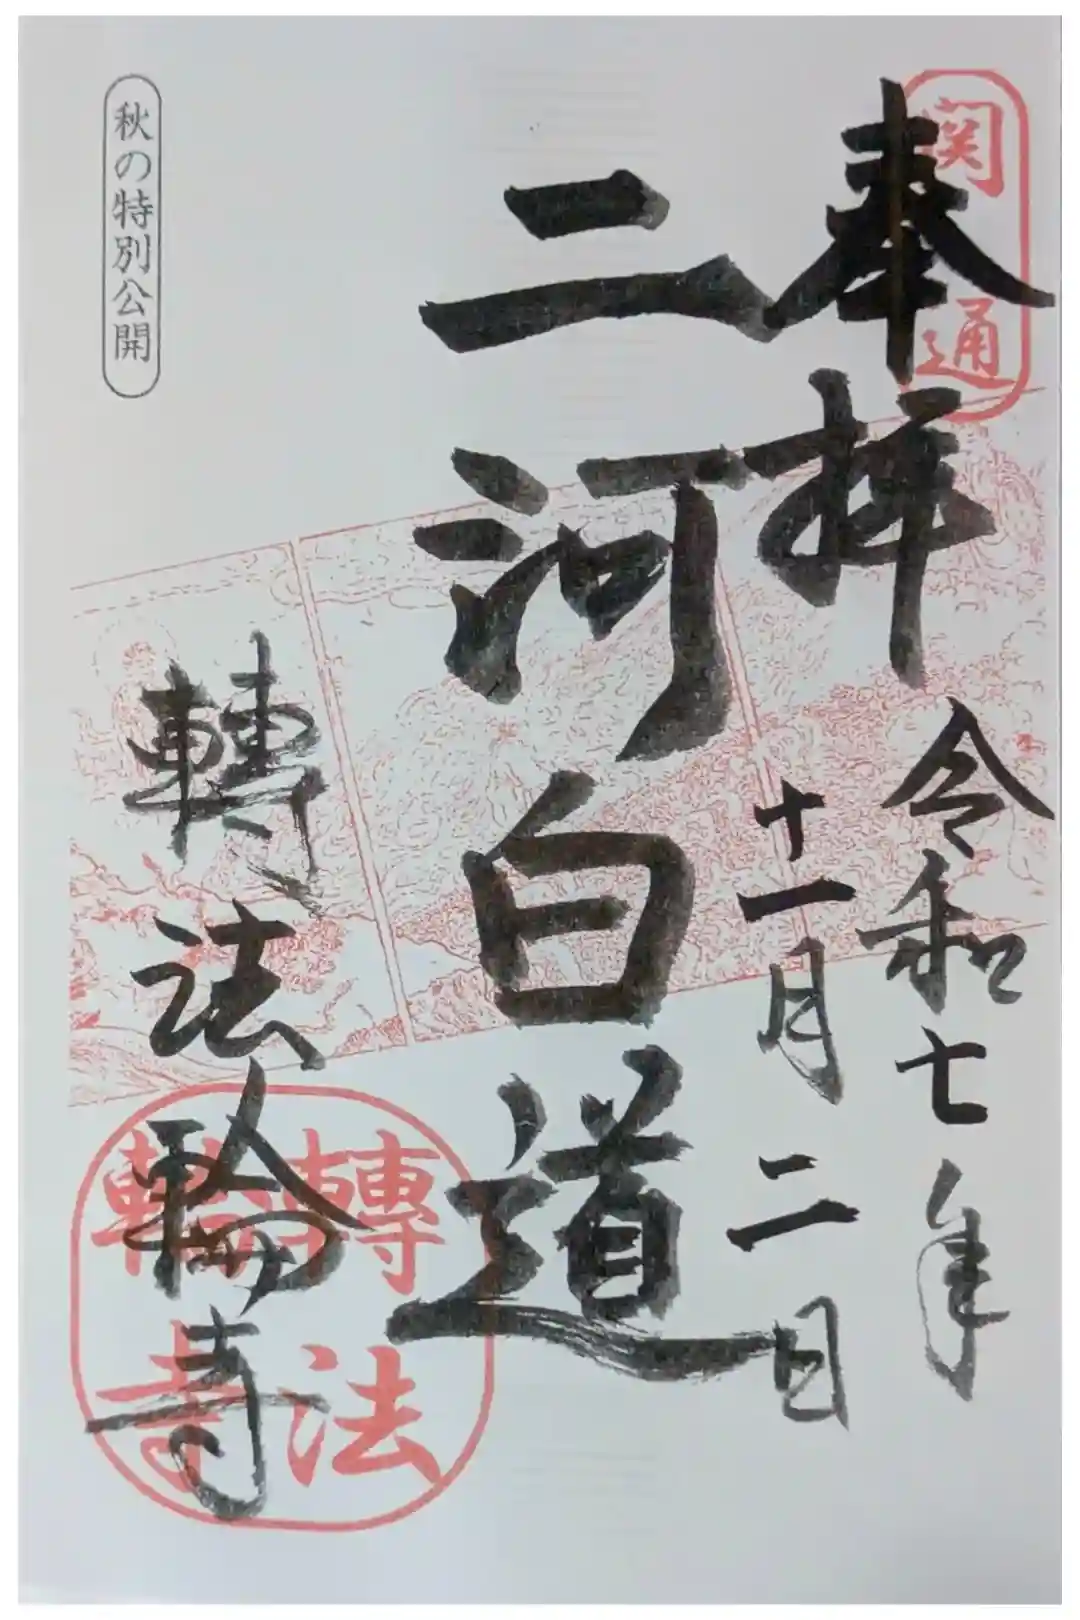 関通
奉拝
令和七年
十一月二日
二河白道
轉法輪寺
轉法輪寺
秋の特別公開